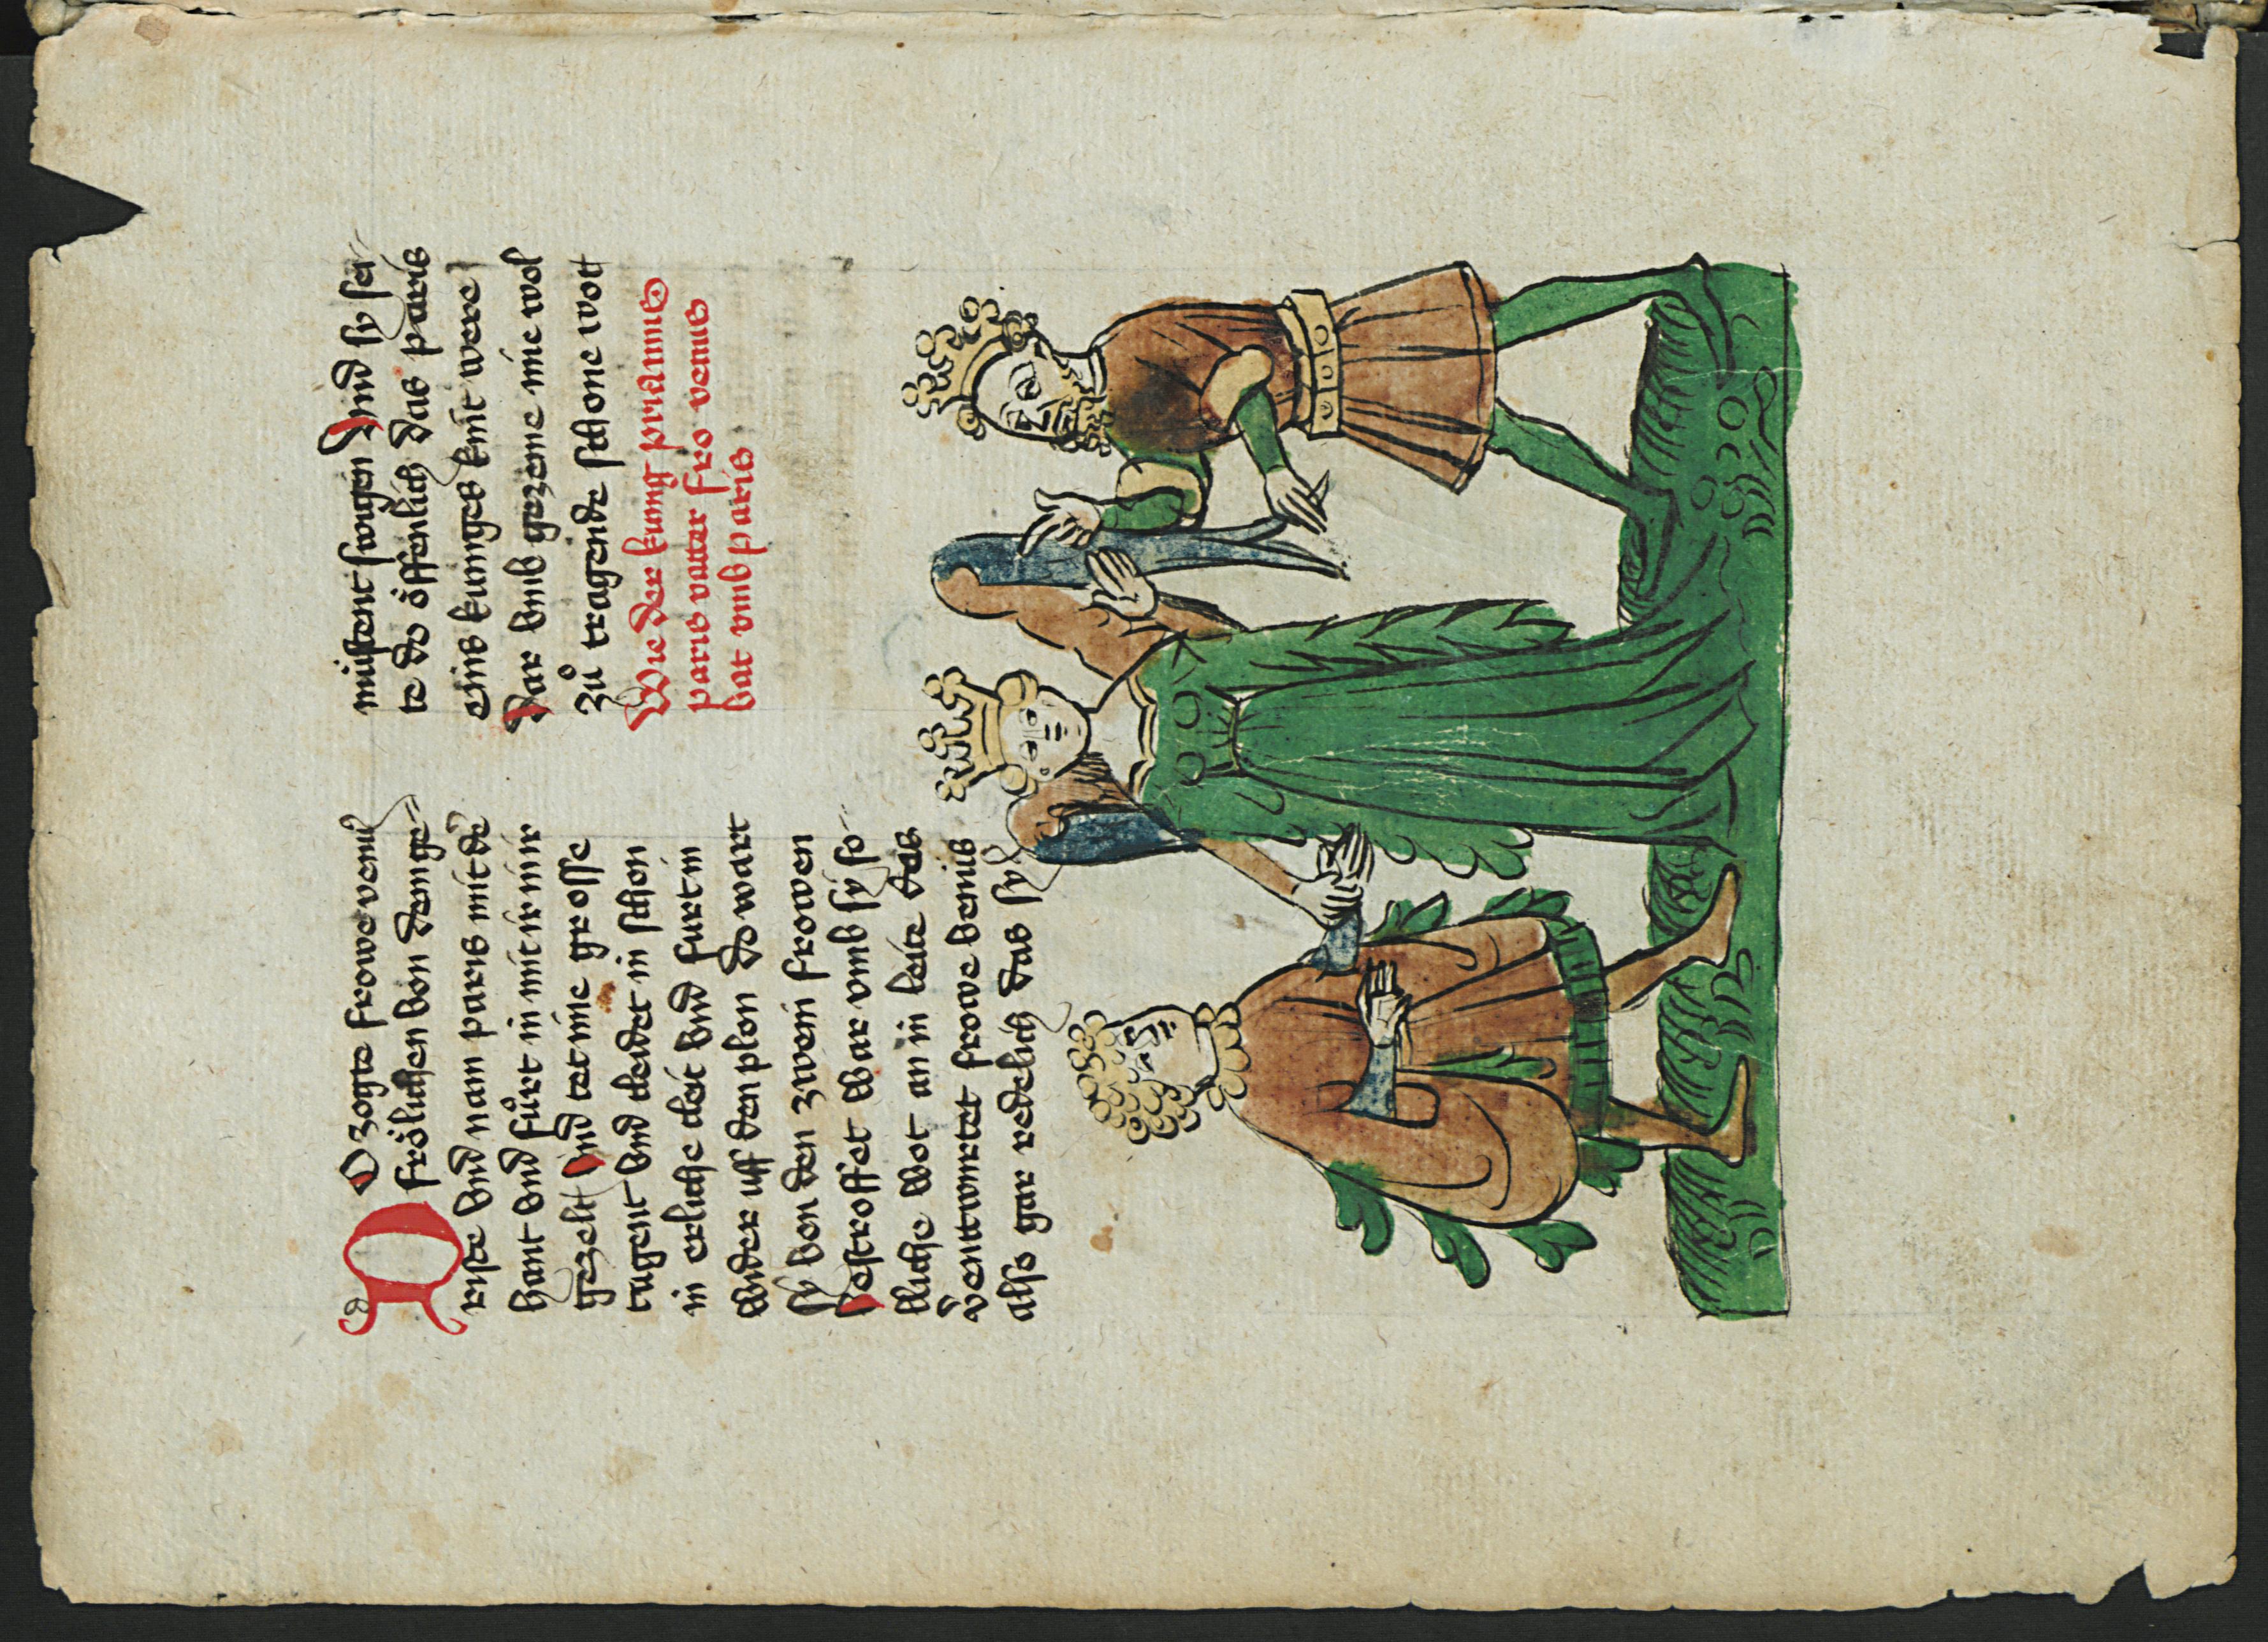 Do zogte frowe venus
frölichen von dem ge-
riste vnd nam paris mit d'
hant vnd fůrt in mit ir in ir
gezelt vnd tet ime grosse
tugent vnd cleidet in schon
in erliche cleit vnd furt in
wider uff den plon Do wart
sy von den zwein frowen
gestroffet war vmb sy so-
lliche wot an in leite das
ventwurtet frowe venus
also gar redelich das sy
můstent swigen Vnd sy sei-
te do öffenlich das paris
eins kunges kint were
Dar vmb gezeme ime wol
zů tragende schone wott
Wie der kung priamus
paris vatter fro venus
bat vmb paris